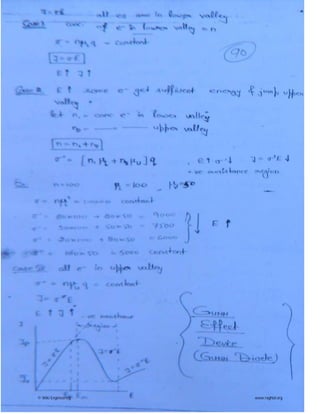 J = σE all e⁻ are in lower valley.
Case I conc. of e⁻ in lower valley = n
σ = nμ₁q = constant
90
J = σE
E↑ J↑
E↑ some e⁻ get sufficient energy & jump upper
valley.
let n₁ = conc e⁻ in lower valley
upper valley
n = n₁ + n₂
σ = [n₁μ₁ + nᵤμᵤ] q , E↑ σ↓ J = σE↓
-ve resistance region
Ex. n=100 μ=100, μ=50
σ = nμ constant
80×100 + 20×50 = 9000
50×100 + 50×50 = 7500 E↑
20×100 + 80×50 = 6000
100×50 = 5000 constant
Case III all e⁻ in upper valley
σ = nμᵤq = constant
J = σE
E↑ J↑
-ve resistance
region
J
J=σE
J=σE
J=σE
E
Gunn
Effect
Device
(Gunn Diode)
www.raghul.org